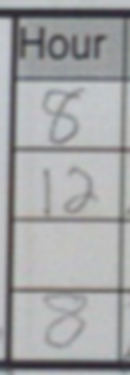 Hour
8
12
8